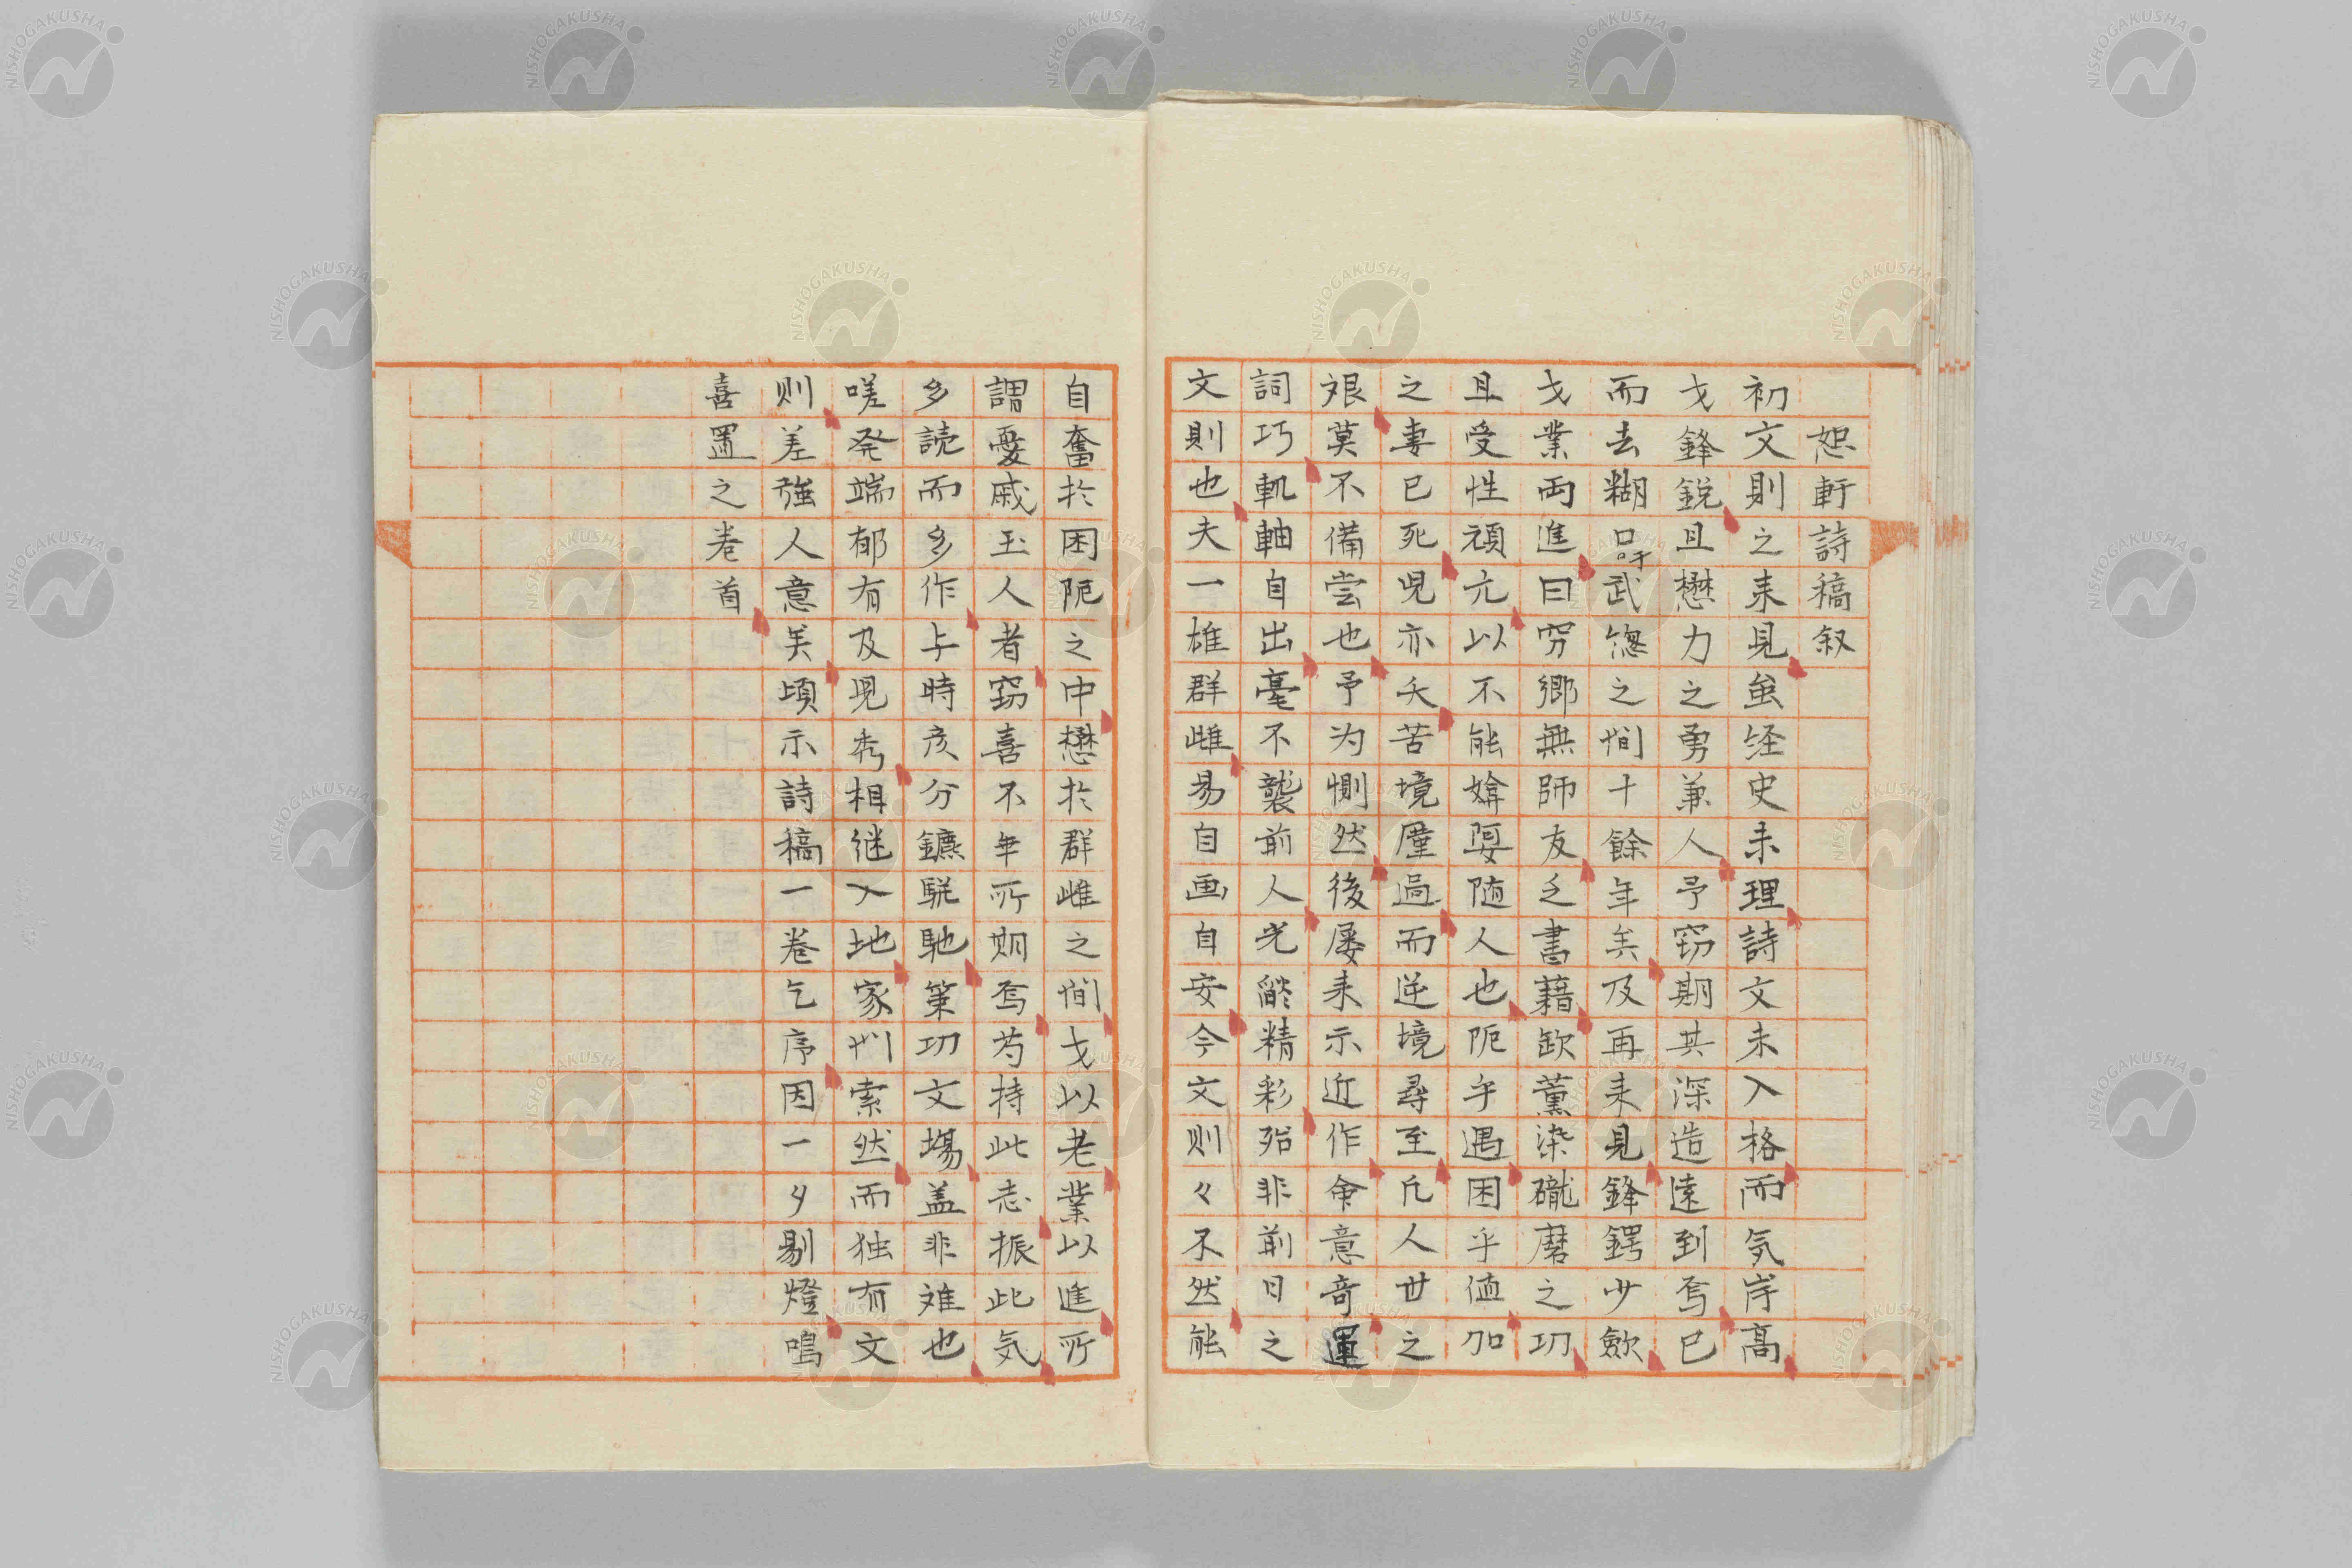 恕軒詩稿叙
初文則之来見虽経史未理詩文未入格而気岸高
才鋒鋭且懋力之勇兼人予窃期其深造遠到焉已
而去糊口於武総之間十餘年矣及再来見鋒鍔少歛
才業両進曰窮郷無師友乏書藉欠薫染礲磨之功
且受性頑亢以不能媕娿随人也阨乎遇困乎値加
之妻已死児亦夭苦境厪過而逆境尋至凡人世之
艰莫不備尝也予为惻然後屡来示近作命意奇運
詞巧軌軸自出毫不襲前人光燄精彩殆非前日之
文則也夫一雄群雌易自画自安今文则々不然能
自奮於困阨之中懋於群雌之間才以老業以進所
謂憂戚玉人者窃喜不辜所期焉苟持此志振此気
多読而多作与時彦分鑣騁馳策功文場盖非难也
嗟発端郁有及児秀相継入地家刑索然而独有文
则差強人意矣頃示詩稿一巻乞序因一夕剔燈鳴
喜置之巻首
NISHOGAKUSHA